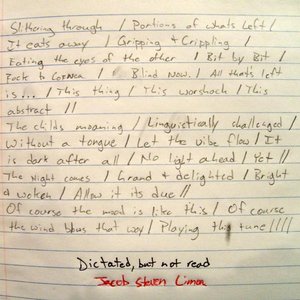 Slithering through / Portions of whats left /
It eats away / Gripping & Crippling /
Eating the eyes of the other / Bit by Bit /
Back to Cornea / Blind Now. / All thats left
is... / This thing / This worshack / This
abstract //
The childs moaning / Linguistically challenged /
Without a tongue / Let the vibe flow / It
is dark after all / No light ahead / Yet //
The Night comes / Grand & delighted / Bright
& woken / Allow it its due //
Of course the mood is like this / Of course
the wind blows that way / Playing this tune ////
Dictated, but not read
Jacob Steven Limon